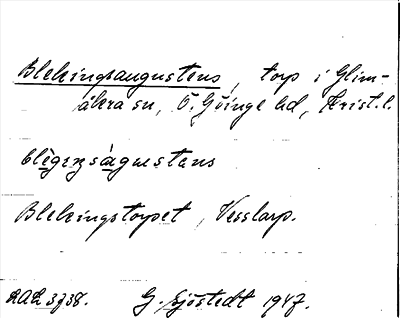 Blekingsaugustens, torp i Glim-
åkra sn, Ö. Göinge hd, Krist. l.
blègeŋságuestens
Blekingstorpet, Vesslarp.
2A2 3738. G. Sjöstedt 1947.